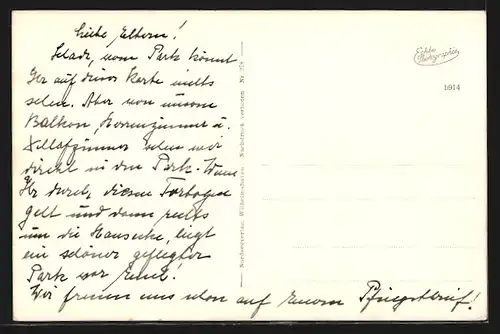 Liebe Eltern!
Schade, vom Park könnt
Ihr auf dieser Karte nichts
sehen. Aber von unserm
Balkon, Herrenzimmer u.
Schlafzimmer sehen wir
direkt in den Park. Wenn
Ihr durch diesen Torbogen
geht und dann rechts
um die Hausecke, liegt
ein schöner gepflegter
Park vor Euch!
Wir freuen uns schon auf Euern Pfingstbrief!
Nordseeverlag, Wilhelmshafen Nachdruck verboten Nr. 378
Echte
Photographie
1914